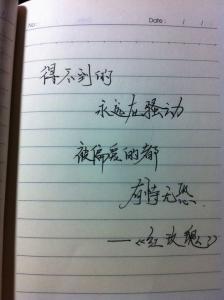 No:
Date: / /
得不到的
永远在骚动
被偏爱的都
有恃无恐.
——《红玫瑰》